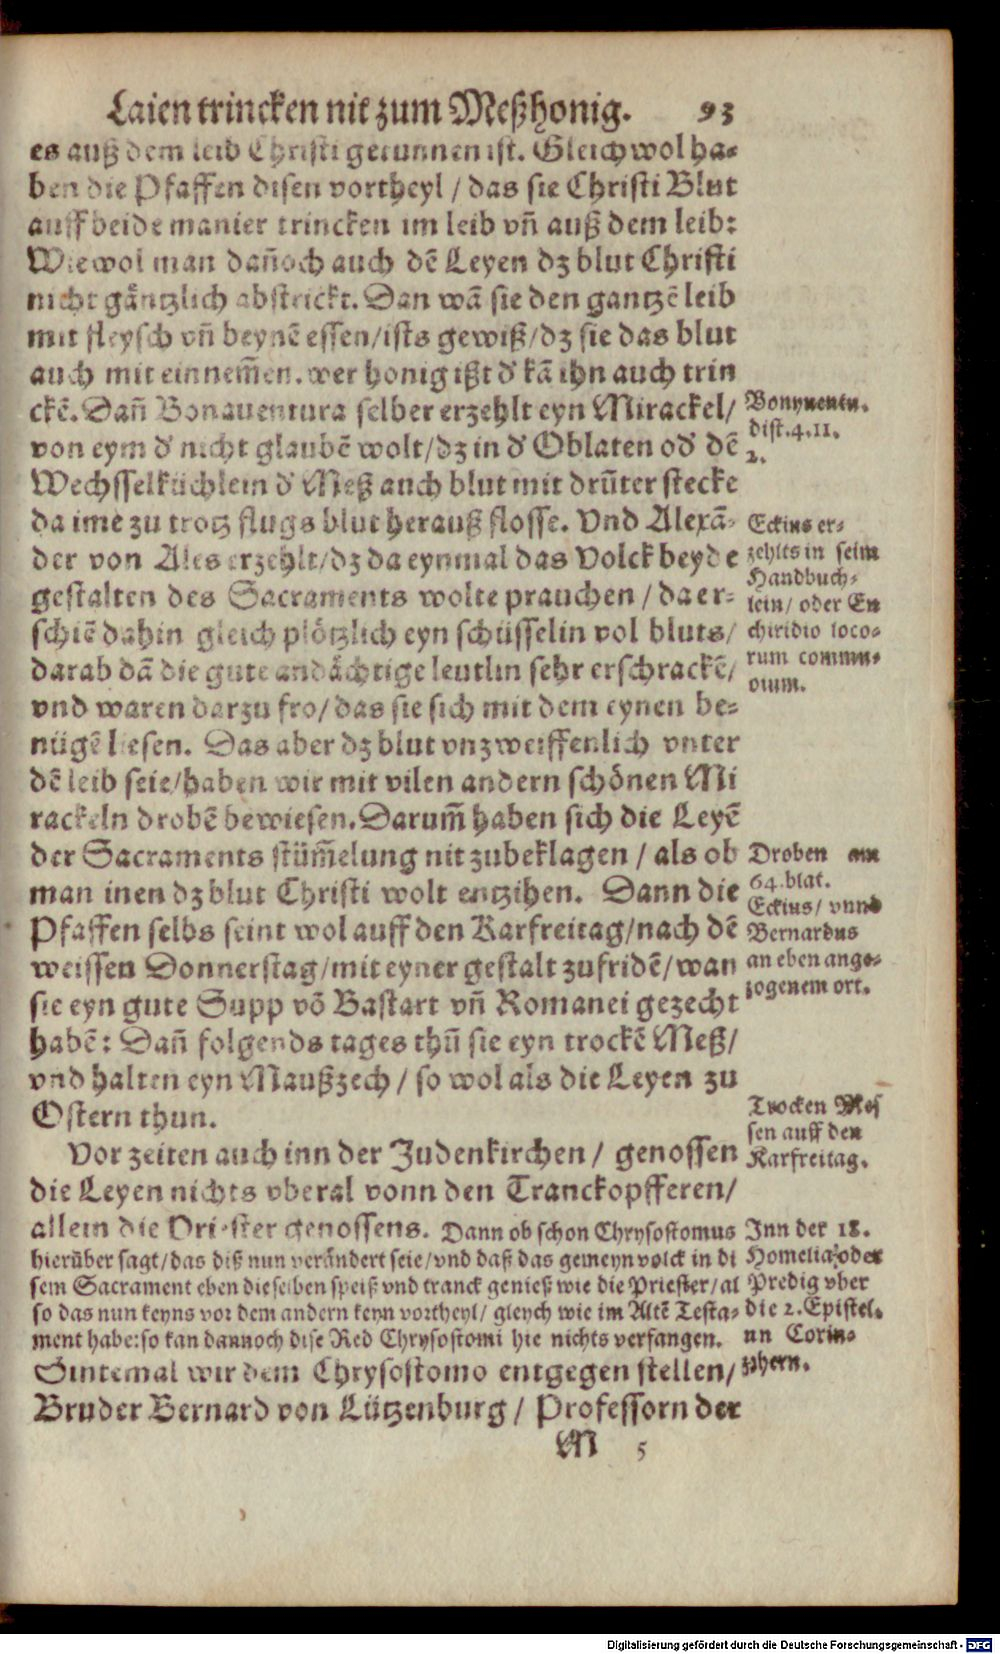 Laien trincken nit zum Meßhonig. 93
es auß dem leib Christi gerunnen ist. Gleich wol ha-
ben die Pfaffen disen vortheyl / das sie Christi Blut
auff beide manier trincken im leib vñ auß dem leib:
Wiewol man dañoch auch dē Leyen dz blut Christi
nicht gäntzlich abstrickt. Dan wā sie den gantzē leib
mit fleysch vñ beynē essen/ists gewiß/dz sie das blut
auch mit einnem̃en. wer honig ißt d' kā ihn auch trin
ckē. Dañ Bonauentura selber erzehlt eyn Mirackel/
von eym d' nicht glaubē wolt/dz in d' Oblaten od' dē
Wechsselküchlein d' Meß auch blut mit drūter stecke
da ime zu trotz flugs blut herauß flosse. Vnd Alexā-
der von Ales erzehlt/dz da eynmal das Volck beyde
gestalten des Sacraments wolte prauchen / da er-
schiē dahin gleich plötzlich eyn schüsselin vol bluts/
darab dā die gute andächtige leutlin sehr erschrackē/
vnd waren darzu fro/das sie sich mit dem eynen be-
nügē liesen. Das aber dz blut vnzweiffenlich vnter
dē leib seie/haben wir mit vilen andern schönen Mi
rackeln drobē bewiesen. Darum̃ haben sich die Leyē
der Sacraments stüm̃elung nit zubeklagen / als ob
man inen dz blut Christi wolt entzihen. Dann die
Pfaffen selbs seint wol auff den Karfreitag/nach dē
weissen Donnerstag/mit eyner gestalt zufridē/wan
sie eyn gute Supp vō Bastart vñ Romanei gezecht
habē: Dañ folgends tages thū sie eyn trockē Meß/
vnd halten eyn Maußzech / so wol als die Leyen zu
Ostern thun.
Vor zeiten auch inn der Judenkirchen / genossen
die Leyen nichts vberal vonn den Tranckopfferen/
allein die Priester genossens. Dann ob schon Chrysostomus
hierüber sagt/das diß nun verändert seie/vnd daß das gemeyn volck in di
sem Sacrament eben dieselben speiß vnd tranck genieß wie die Priester/al
so das nun keyns vor dem andern keyn vortheyl/ gleych wie im Altē Testa-
ment habe:so kan dannoch dise Red Chrysostomi hie nichts verfangen.
Sintemal wir dem Chrysostomo entgegen stellen/
Bruder Bernard von Lützenburg / Professorn der
M 5
dist.4.11.
2.
Eckius er-
zehlts in seim
Handbuch-
lein/ oder En
chiridio loco-
rum commu-
Droben am
64.blat.
Eckius/ vnnd
Bernardus
an eben ange-
zogenem ort.
Trocken Mes
sen auff den
Karfreitag.
Inn der 18.
Homelia/oder
Predig vber
die 2.Epistel.
Corin-
Digitalisierung gefördert durch die Deutsche Forschungsgemeinschaft - DFG